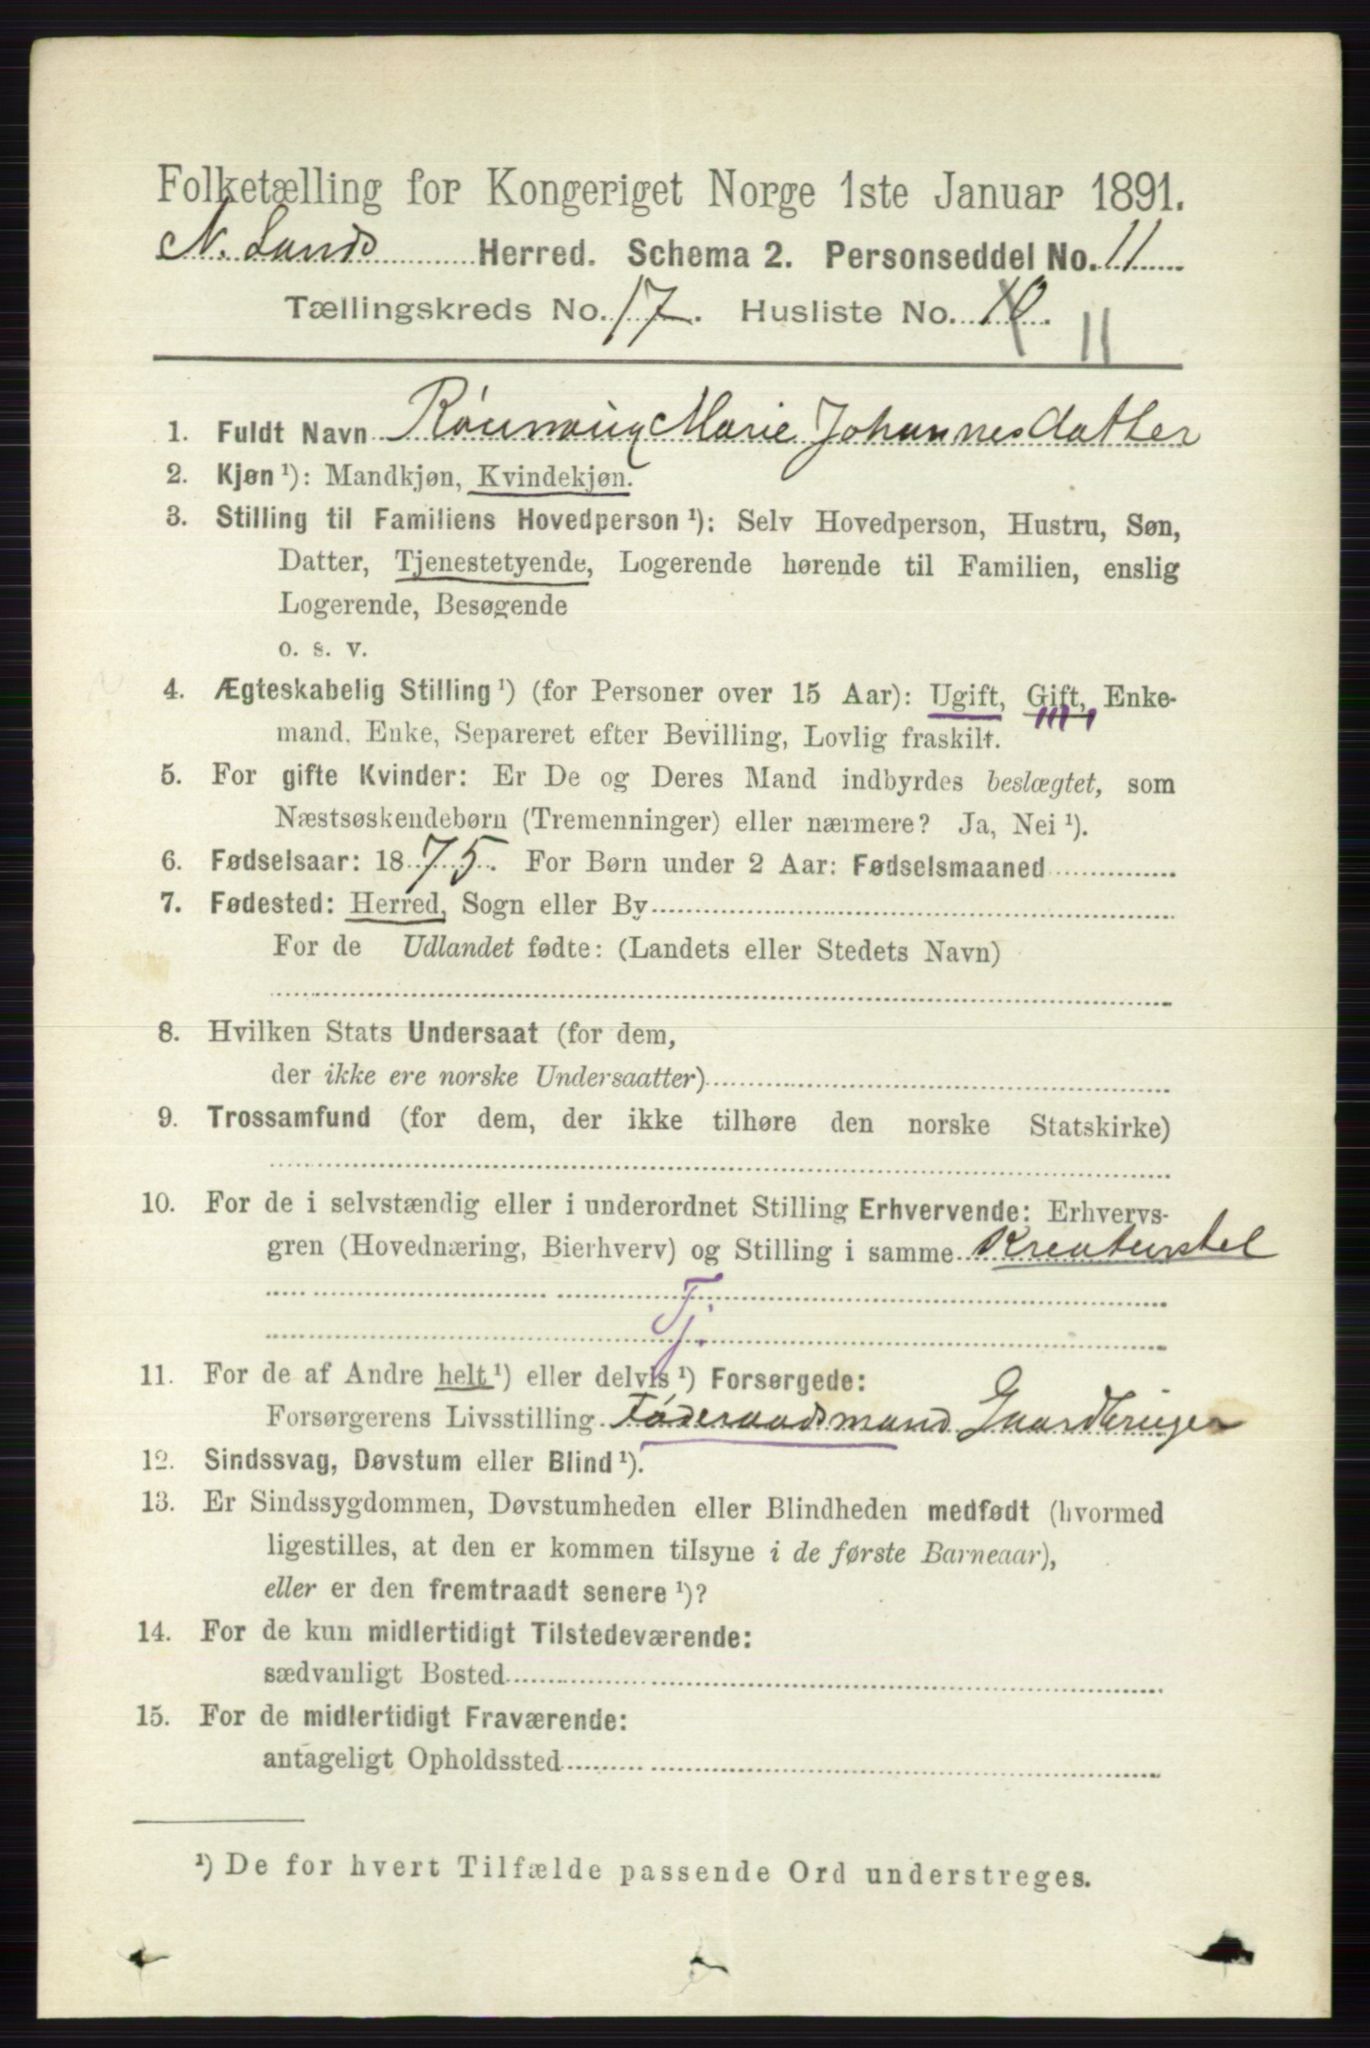 Folketælling for Kongeriget Norge 1ste Januar 1891.
N. Lands Herred. Schema 2. Personseddel No. 11
Tællingskreds No. 17. Husliste No. 10. 11
1. Fuldt Navn Rönnaug Marie Johannesdatter
2. Kjøn ¹): Mandkjøn, Kvindekjøn.
3. Stilling til Familiens Hovedperson ¹): Selv Hovedperson, Hustru, Søn,
Datter, Tjenestetyende, Logerende hørende til Familien, enslig
Logerende, Besøgende
o. s. v.
4. Ægteskabelig Stilling ¹) (for Personer over 15 Aar): Ugift, Gift, Enke-
mand, Enke, Separeret efter Bevilling, Lovlig fraskilt.
5. For gifte Kvinder: Er De og Deres Mand indbyrdes beslægtet, som
Næstsøskendebørn (Tremenninger) eller nærmere? Ja, Nei ¹).
6. Fødselsaar: 1875. For Børn under 2 Aar: Fødselsmaaned
7. Fødested: Herred, Sogn eller By
For de Udlandet fødte: (Landets eller Stedets Navn)
8. Hvilken Stats Undersaat (for dem,
der ikke ere norske Undersaatter)
9. Trossamfund (for dem, der ikke tilhøre den norske Statskirke)
10. For de i selvstændig eller i underordnet Stilling Erhvervende: Erhvervs-
gren (Hovednæring, Bierhverv) og Stilling i samme Kreaturstel
Tj.
11. For de af Andre helt ¹) eller delvis ¹) Forsørgede:
Forsørgerens Livsstilling Föderaadsmand Gaardbruger
12. Sindssvag, Døvstum eller Blind ¹).
13. Er Sindssygdommen, Døvstumheden eller Blindheden medfødt (hvormed
ligestilles, at den er kommen tilsyne i de første Barneaar),
eller er den fremtraadt senere ¹)?
14. For de kun midlertidigt Tilstedeværende:
sædvanligt Bosted
15. For de midlertidigt Fraværende:
antageligt Opholdssted
¹) De for hvert Tilfælde passende Ord understreges.